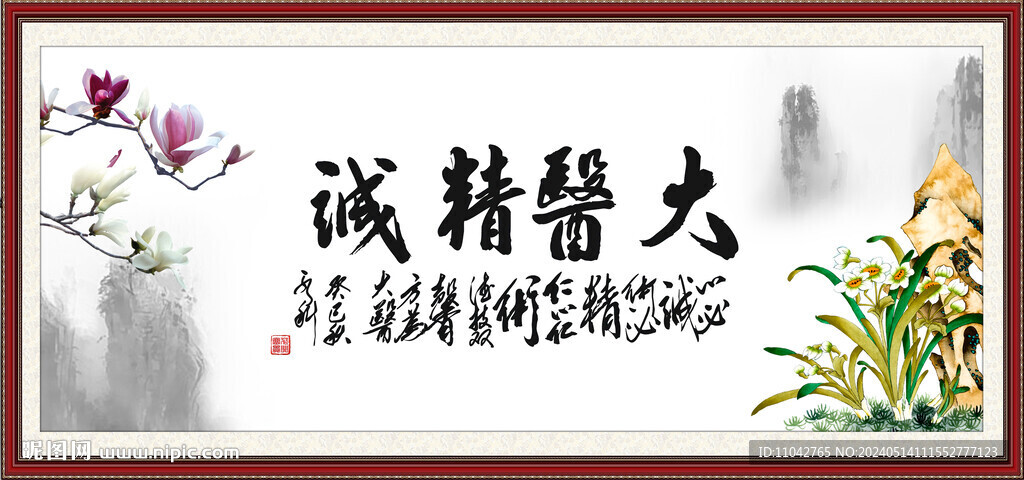 大醫精誠
心必
誠
術必
精
仁心仁
術
德技双
馨
方為
大醫
癸巳秋
昵图网 www.nipic.com
ID:11042765 NO:20240514111552777123